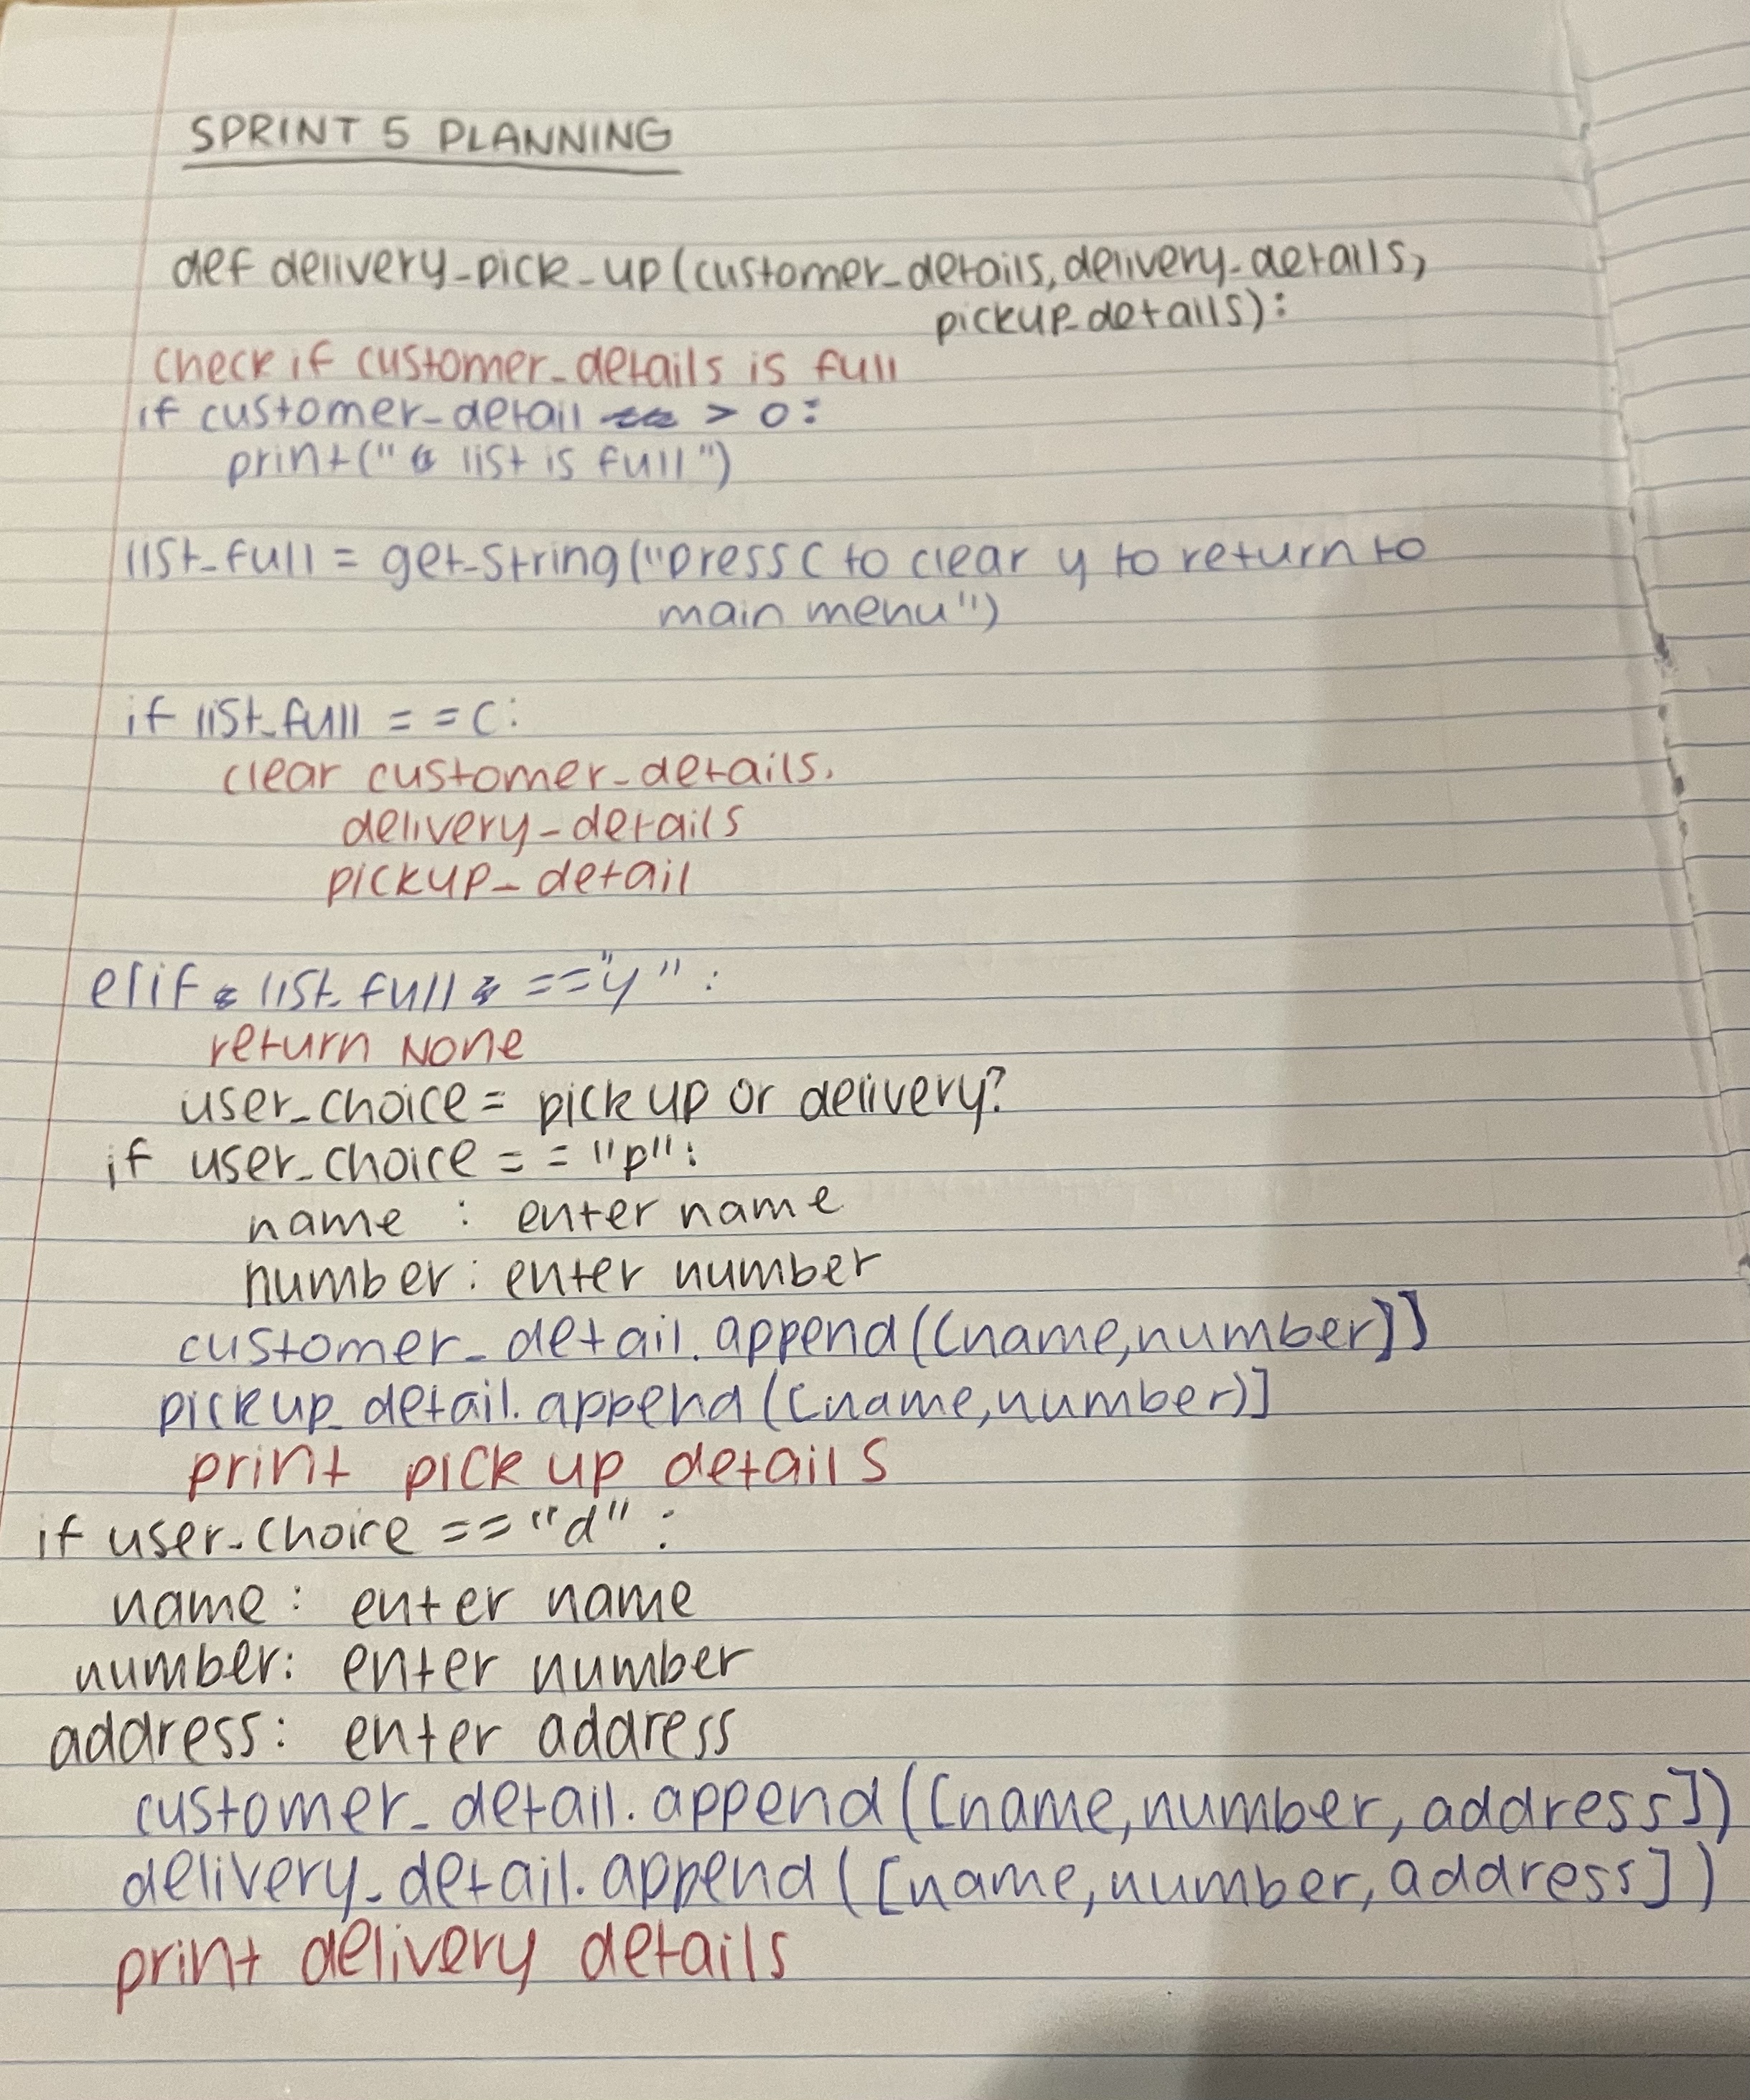 SPRINT 5 PLANNING
def delivery_pick_up(customer_details, delivery_details,
pickup_details):
check if customer_details is full
if customer_detail > 0:
print(" list is full")
list_full = get_string("press c to clear y to return to
main menu")
if list_full = = C:
clear customer_details.
delivery_details
pickup_detail
elif list_full =="y" :
return None
user_choice = pick up or delivery?
if user_choice = = "p":
name : enter name
number: enter number
customer_detail.append([name,number]]
pickup_detail.append([name,number)]
print pick up details
if user_choice == "d" :
name: enter name
number: enter number
address: enter address
customer_detail.append([name,number, address])
delivery_detail.append([name,number, address])
print delivery details